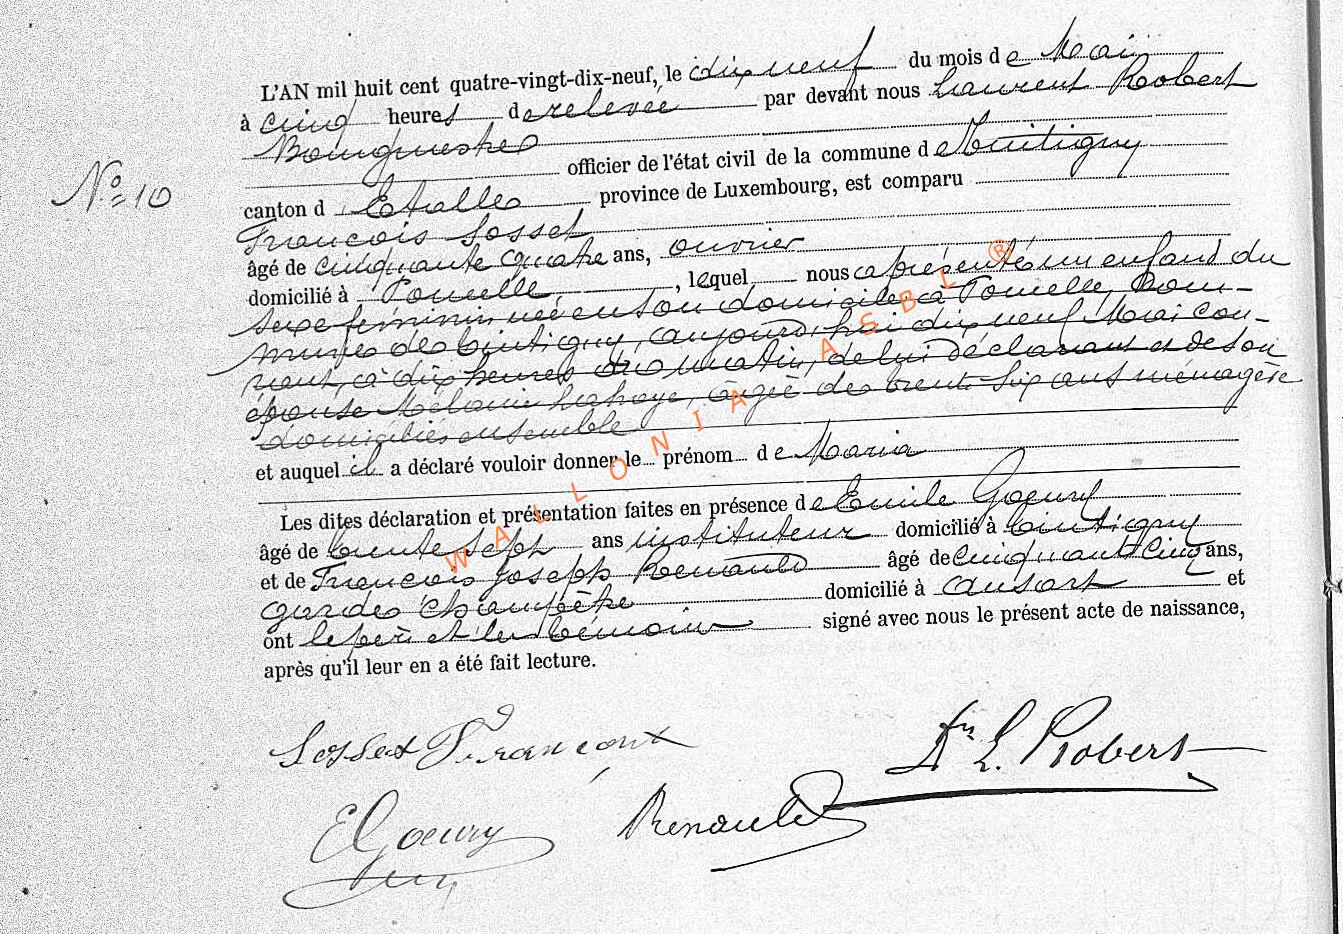 L'AN mil huit cent quatre-vingt-dix-neuf, le dix neuf du mois de Mai
à cinq heures de relevée par devant nous Laurent Robert
Bourgmestre
officier de l'état civil de la commune de Tintigny
N° 10
canton d Etalle province de Luxembourg, est comparu
François Sosset
âgé de cinquante quatre ans, ouvrier
domicilié à Poncelle, lequel nous a présenté un enfant du
sexe féminin née en son domicile à Poncelle, Com-
mune de Tintigny, aujourd'hui dix neuf Mai cou-
rant, à dix heures du matin, de lui déclarant et de son
épouse Mélanie Lahaye, âgée de trente six ans ménagère
domiciliés ensemble
et auquel il a déclaré vouloir donner le prénom de Maria
Les dites déclaration et présentation faites en présence de Emile Goeury
âgé de trente sept ans instituteur domicilié à Tintigny
et de François Joseph Renauld âgé de cinquante cinq ans,
garde champêtre domicilié à Ansart et
ont le père et les témoins signé avec nous le présent acte de naissance,
après qu'il leur en a été fait lecture.
Sosset François
Dr L. Robert
EGoeury
Renauld
WALLONIA ASBL ®